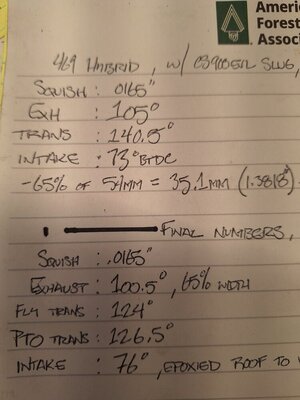 Americ
Forest
Associ
469 HYBRID, W/ 03903E1L SLUG,
SQUISH : .0165"
EXH : 105°
TRANS : 140.5°
INTAKE : 73° BTDC
-65% OF 54MM = 35.1MM (1.3818")
FINAL NUMBERS,
SQUISH : .0165"
EXHAUST : 100.5°, 65% WIDTH
FLY TRANS : 124°
PTO TRANS : 126.5°
INTAKE : 76°, EPOXIED ROOF TO